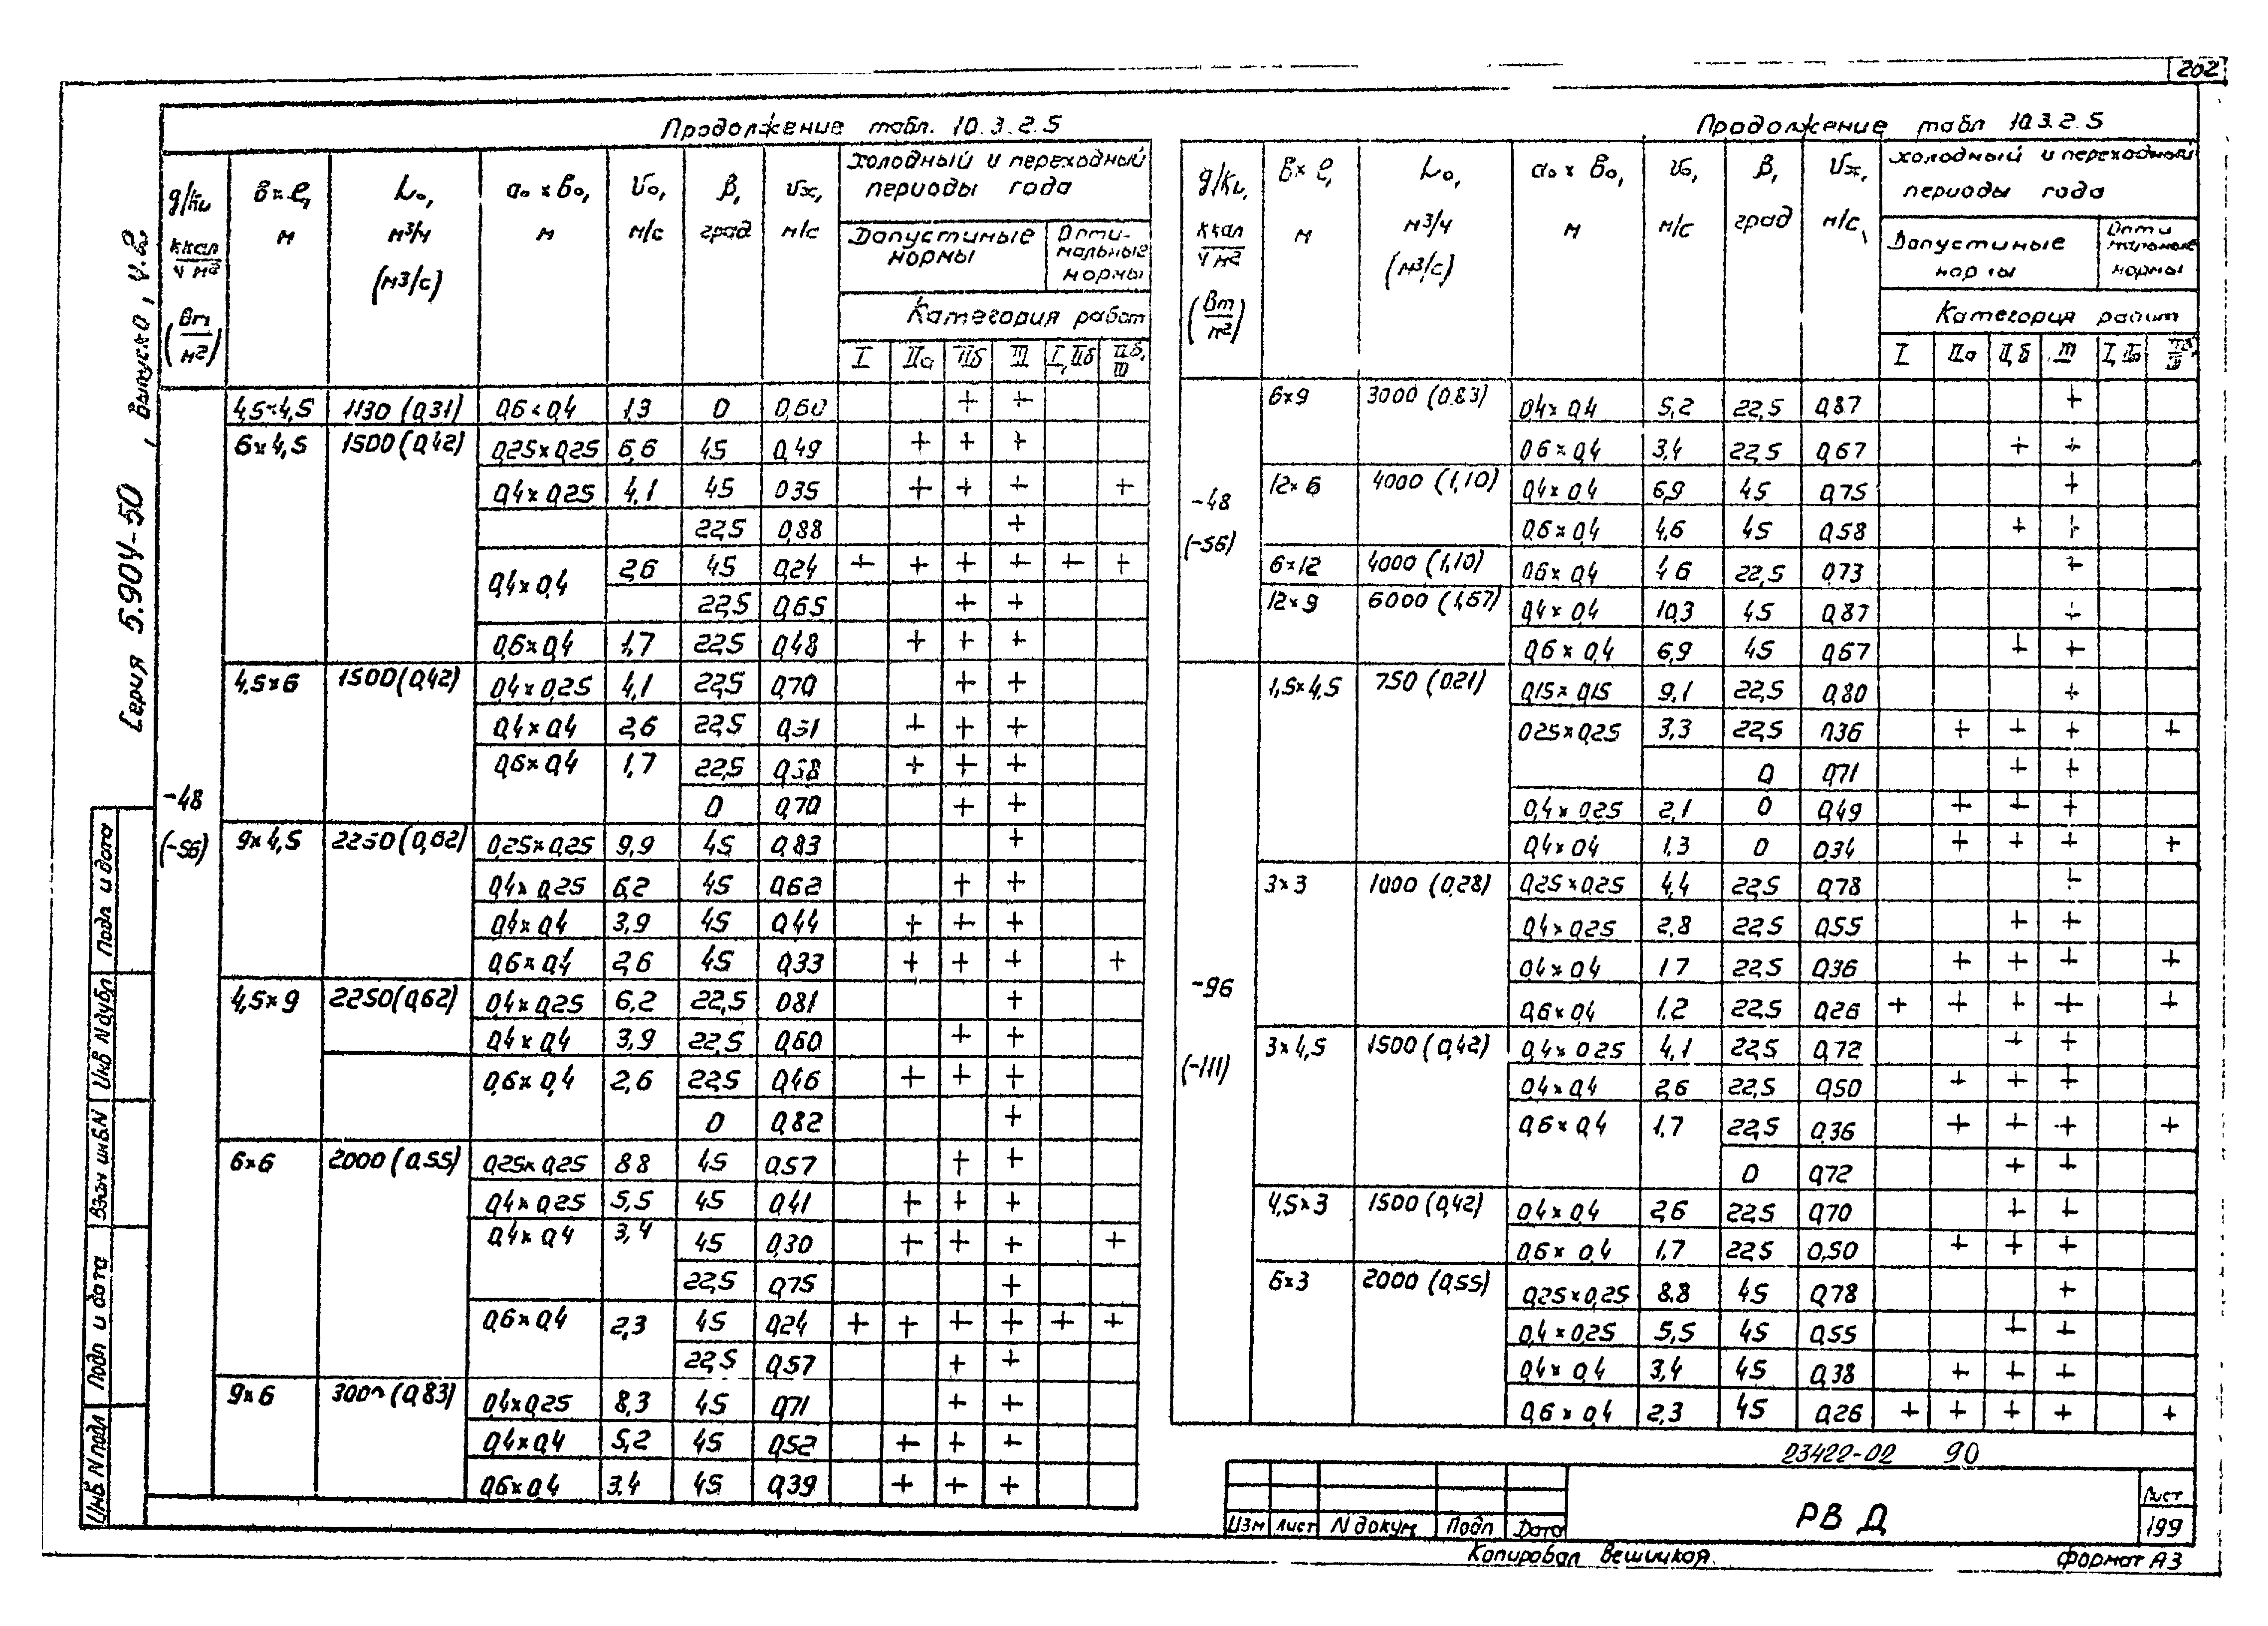 202
Серия 5.904-50 , выпуск 0, ч.2
Продолжение табл. 10.3.2.5
g/кн ккал/ч м² (Вт/м²) | в×ℓ, м | L₀, м³/ч (м³/с) | a₀×в₀, м | v₀, м/с | β, град | vж, м/с | холодный и переходный периоды года
Допустимые нормы | Оптимальные нормы
Категория работ
I | IIа | IIб | III | I, IIб | IIб, III
-48 (-56)
4,5×4,5 | 1130 (0,31) | 0,6×0,4 | 1,3 | 0 | 0,60 | | | + | + | |
6×4,5 | 1500 (0,42) | 0,25×0,25 | 6,6 | 45 | 0,49 | | + | + | + | |
0,4×0,25 | 4,1 | 45 | 035 | | + | + | + | | +
22,5 | 0,88 | | | | + | |
0,4×0,4 | 2,6 | 45 | 0,24 | + | + | + | + | + | +
22,5 | 0,65 | | | + | + | |
0,6×0,4 | 1,7 | 22,5 | 0,48 | | + | + | + | |
4,5×6 | 1500 (0,42) | 0,4×0,25 | 4,1 | 22,5 | 0,70 | | | + | + | |
0,4×0,4 | 2,6 | 22,5 | 0,51 | | + | + | + | |
0,6×0,4 | 1,7 | 22,5 | 0,38 | | + | + | + | |
0 | 0,70 | | | + | + | |
9×4,5 | 2250 (0,62) | 0,25×0,25 | 9,9 | 45 | 0,83 | | | | + | |
0,4×0,25 | 6,2 | 45 | 0,62 | | | + | + | |
0,4×0,4 | 3,9 | 45 | 0,44 | | + | + | + | |
0,6×0,4 | 2,6 | 45 | 0,33 | | + | + | + | | +
4,5×9 | 2250 (0,62) | 0,4×0,25 | 6,2 | 22,5 | 081 | | | | + | |
0,4×0,4 | 3,9 | 22,5 | 0,60 | | | + | + | |
0,6×0,4 | 2,6 | 22,5 | 0,46 | | + | + | + | |
0 | 0,82 | | | | + | |
6×6 | 2000 (0,55) | 0,25×0,25 | 8,8 | 45 | 0,57 | | | + | + | |
0,4×0,25 | 5,5 | 45 | 0,41 | | + | + | + | |
0,4×0,4 | 3,4 | 45 | 0,30 | | + | + | + | | +
22,5 | 0,75 | | | | + | |
0,6×0,4 | 2,3 | 45 | 0,24 | + | + | + | + | + | +
22,5 | 0,57 | | | + | + | |
9×6 | 3000 (0,83) | 0,4×0,25 | 8,3 | 45 | 0,71 | | | + | + | |
0,4×0,4 | 5,2 | 45 | 0,52 | | + | + | + | |
0,6×0,4 | 3,4 | 45 | 0,39 | | + | + | + | |
Продолжение табл 10.3.2.5
g/кн, ккал/ч м² (Вт/м²) | в×ℓ, м | L₀, м³/ч (м³/с) | a₀×в₀, м | v₀, м/с | β, град | vж, м/с | холодный и переходный периоды года
Допустимые нормы | Оптимальные нормы
Категория работ
I | IIа | II,б | III | I, IIа | IIб, III
-48 (-56)
6×9 | 3000 (0,83) | 0,4×0,4 | 5,2 | 22,5 | 0,87 | | | | + | |
0,6×0,4 | 3,4 | 22,5 | 0,67 | | | + | + | |
12×6 | 4000 (1,10) | 0,4×0,4 | 6,9 | 45 | 0,75 | | | | + | |
0,6×0,4 | 4,6 | 45 | 0,58 | | | + | + | |
6×12 | 4000 (1,10) | 0,6×0,4 | 4,6 | 22,5 | 0,73 | | | | + | |
12×9 | 6000 (1,67) | 0,4×0,4 | 10,3 | 45 | 0,87 | | | | + | |
0,6×0,4 | 6,9 | 45 | 0,67 | | | + | + | |
-96 (-111)
1,5×4,5 | 750 (0,21) | 0,15×0,15 | 9,1 | 22,5 | 0,80 | | | | + | |
0,25×0,25 | 3,3 | 22,5 | 0,36 | | + | + | + | | +
0 | 0,71 | | | + | + | |
0,4×0,25 | 2,1 | 0 | 0,49 | | + | + | + | |
0,4×0,4 | 1,3 | 0 | 0,34 | | + | + | + | | +
3×3 | 1000 (0,28) | 0,25×0,25 | 4,4 | 22,5 | 0,78 | | | | + | |
0,4×0,25 | 2,8 | 22,5 | 0,55 | | | + | + | |
0,4×0,4 | 1,7 | 22,5 | 0,36 | | + | + | + | | +
0,6×0,4 | 1,2 | 22,5 | 0,26 | + | + | + | + | | +
3×4,5 | 1500 (0,42) | 0,4×0,25 | 4,1 | 22,5 | 0,72 | | | + | + | |
0,4×0,4 | 2,6 | 22,5 | 0,50 | | + | + | + | |
0,6×0,4 | 1,7 | 22,5 | 0,36 | | + | + | + | | +
0 | 0,72 | | | + | + | |
4,5×3 | 1500 (0,42) | 0,4×0,4 | 2,6 | 22,5 | 0,70 | | | + | + | |
0,6×0,4 | 1,7 | 22,5 | 0,50 | | + | + | + | |
6×3 | 2000 (0,55) | 0,25×0,25 | 8,8 | 45 | 0,78 | | | | + | |
0,4×0,25 | 5,5 | 45 | 0,55 | | | + | + | |
0,4×0,4 | 3,4 | 45 | 0,38 | | + | + | + | |
0,6×0,4 | 2,3 | 45 | 0,26 | + | + | + | + | | +
23422-02 90
Изм Лист N докум. Подп Дата
РВ Д
Лист
199
Копировал Вешицкая
Формат А3
Инв N подл
Подп и дата
Взам инв.N
Инв N дубл
Подп и дата